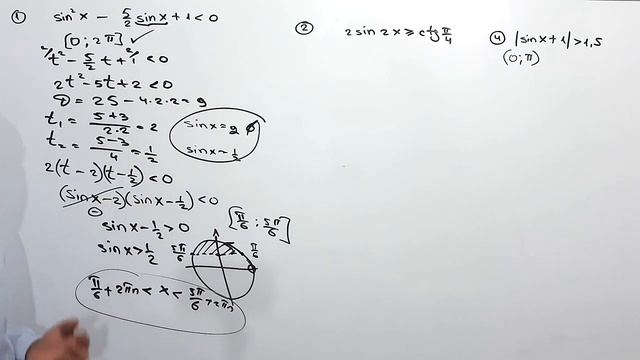 ① sin²x − 5/2 sinx + 1 < 0
[0 ; 2π] ✓
²/t² − 5/2 t + ²/1 < 0
2t² − 5t + 2 < 0
D = 25 − 4·2·2 = 9
t₁ = (5+3)/(2·2) = 2
t₂ = (5−3)/4 = 1/2
sinx = 2 ∅
sinx = 1/2
2(t − 2)(t − 1/2) < 0
(sinx − 2)(sinx − 1/2) < 0
−
sinx − 1/2 > 0
[π/6 ; 5π/6]
sinx > 1/2
5π/6
π/6
π/6 + 2πn < x < 5π/6 + 2πn
② 2 sin 2x ≥ ctg π/4
④ |sinx + 1| > 1,5
(0; π)